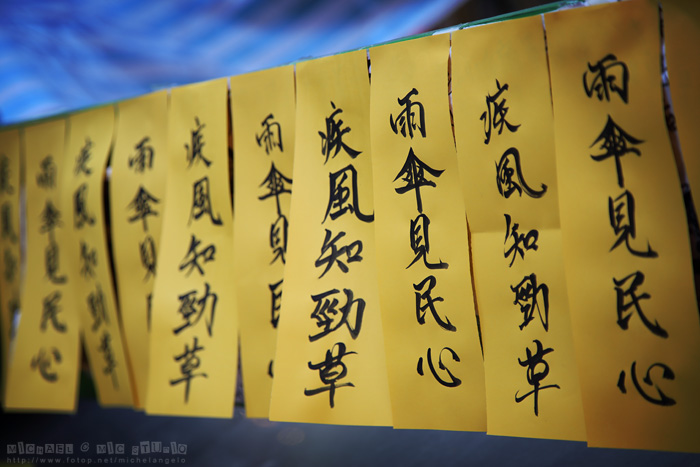 雨傘見民心
疾風知勁草
雨傘見
疾風知勁草
雨傘見民
疾風知勁草
雨傘見民心
疾風知勁草
雨傘見民心
MICHAEL @ MIC STUDIO
http://www.fotop.net/michelangelo